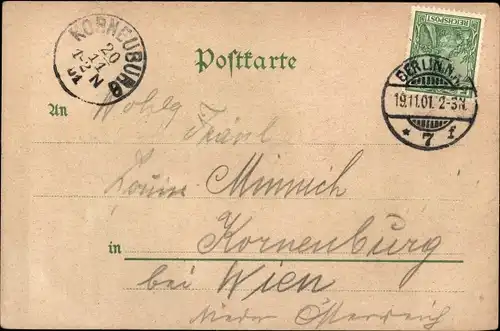 KORNEUBURG
20
11
12 N
01
Postkarte
REICHSPOST
BERLIN N.W.
19.11.01. 2-3N.
* 7 f
An Wohlg
Fräul
Louise Minnich
in Korneuburg
bei Wien
Nieder Österreich